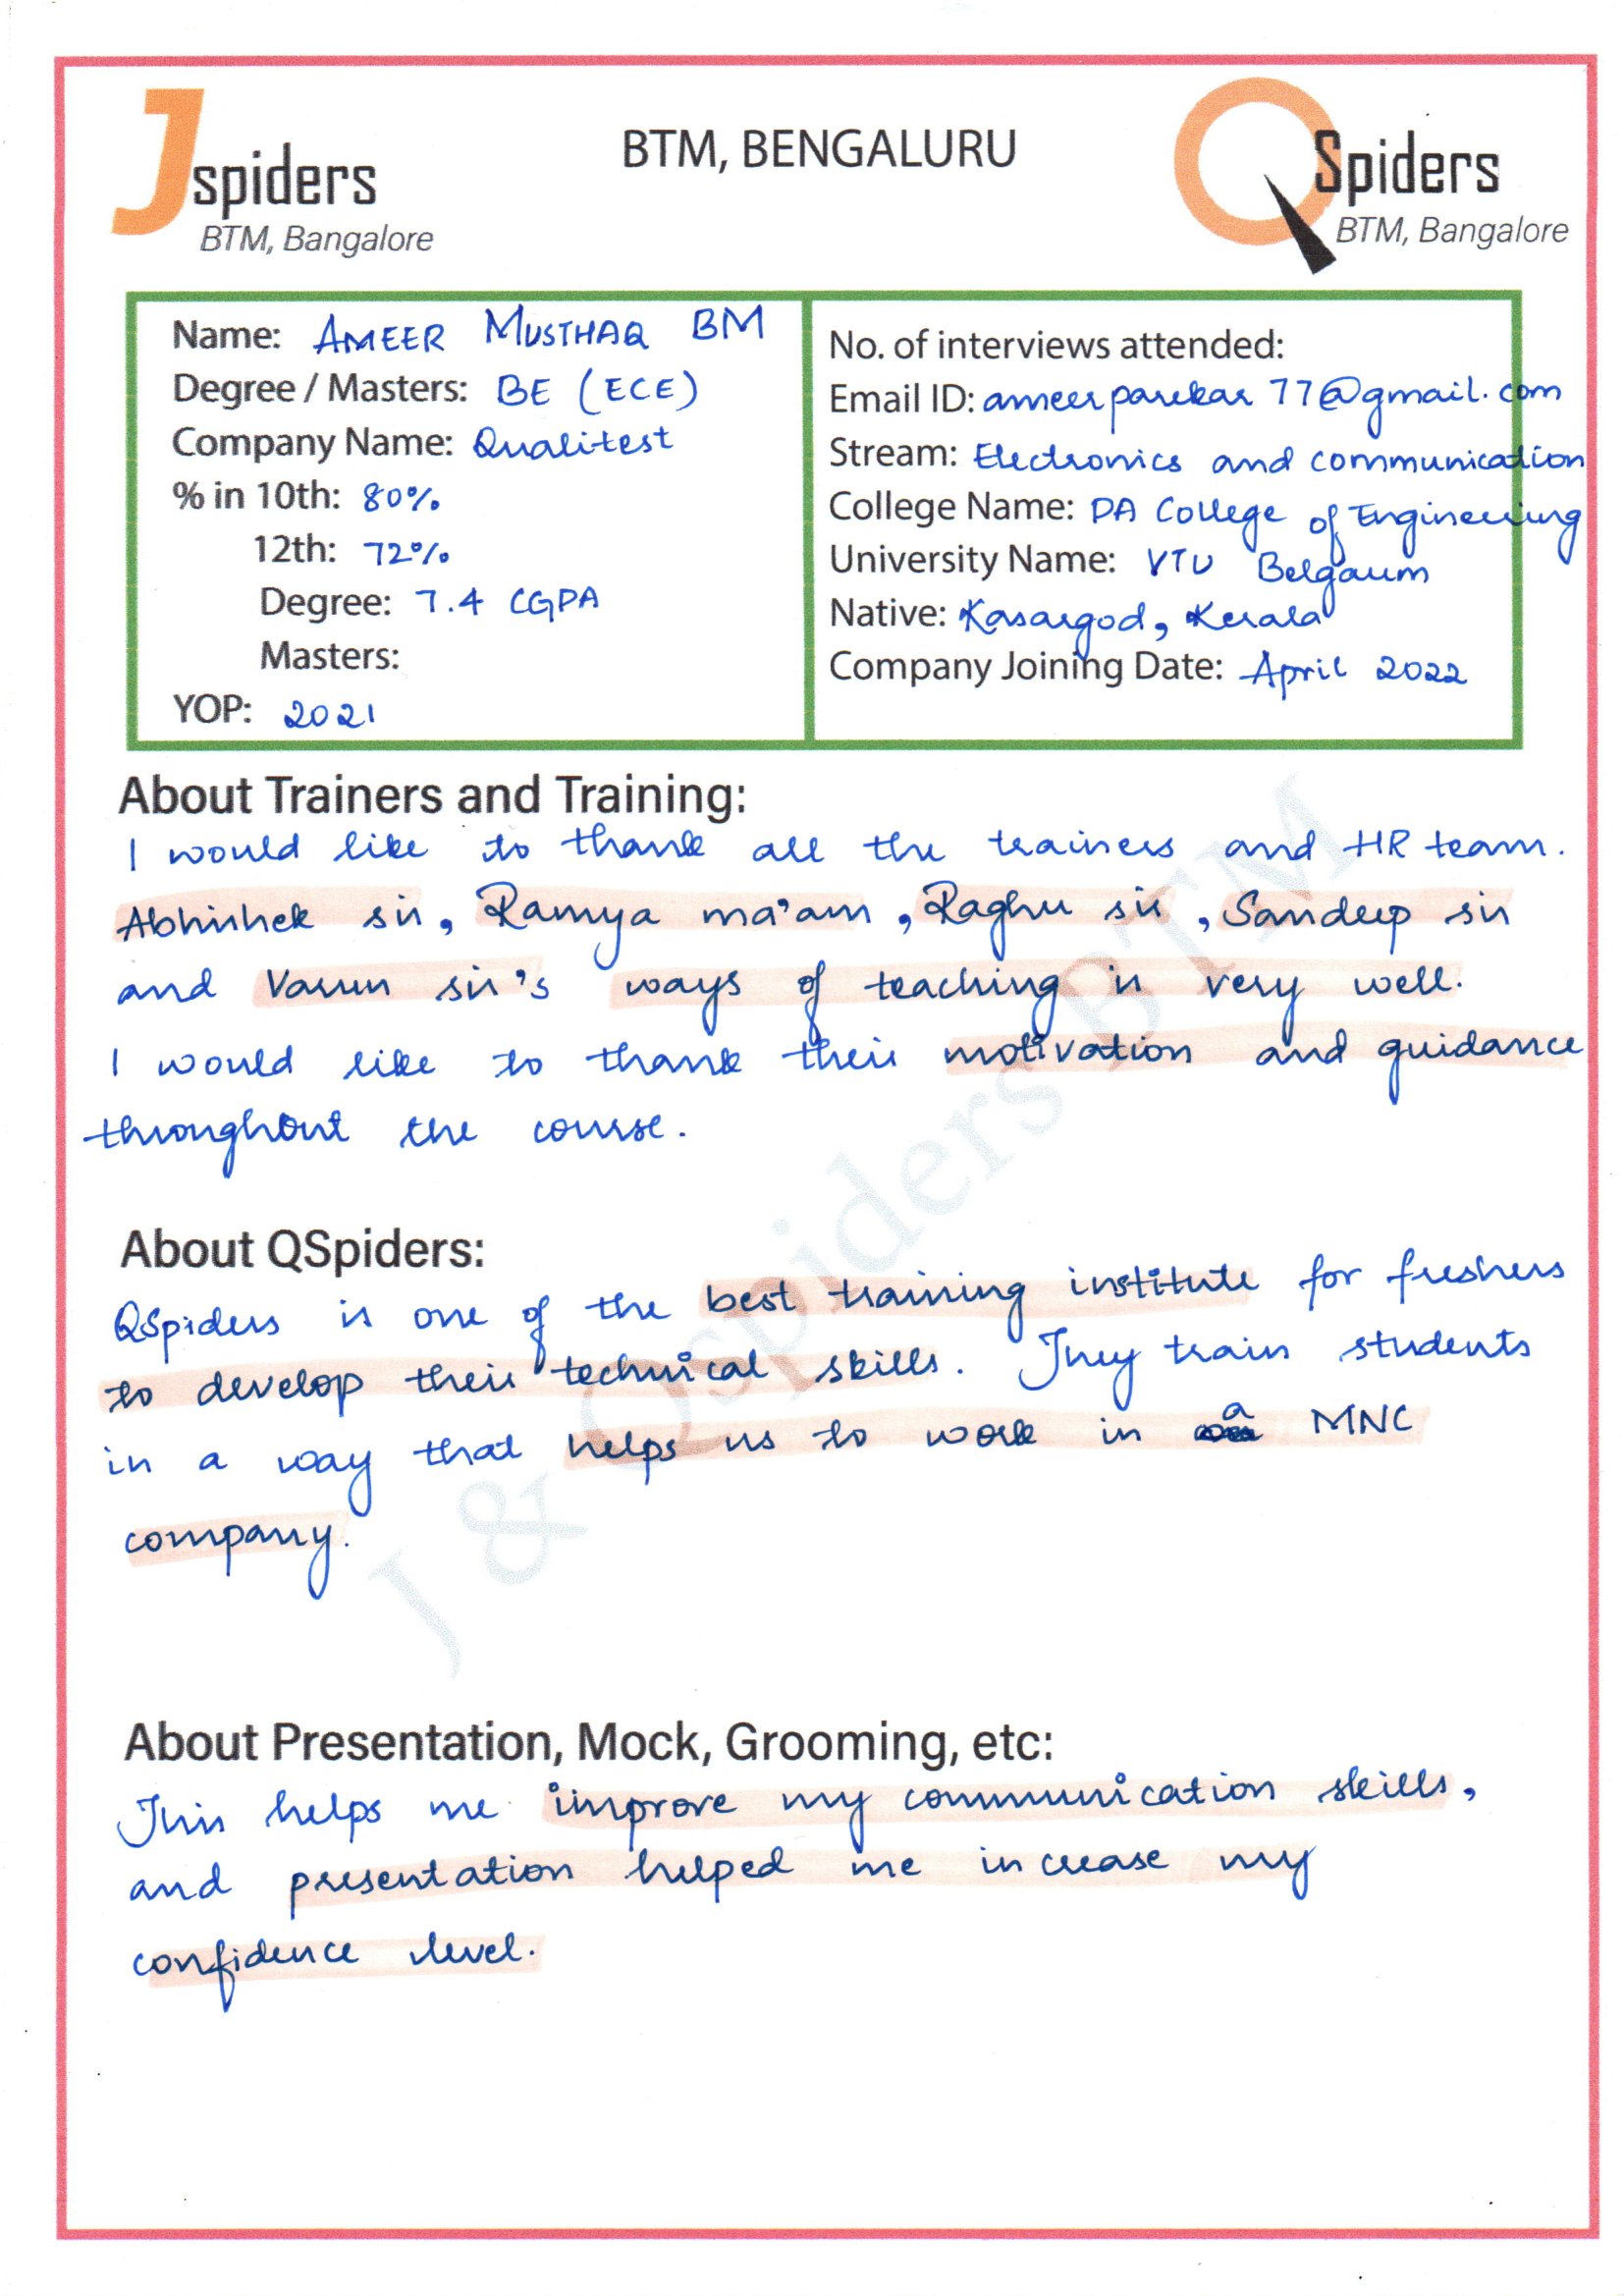 Jspiders
BTM, Bangalore
BTM, BENGALURU
QSpiders
BTM, Bangalore
Name: AMEER MUSTHAQ BM
Degree / Masters: BE (ECE)
Company Name: Qualitest
% in 10th: 80%
12th: 72%
Degree: 7.4 CGPA
Masters:
YOP: 2021
No. of interviews attended:
Email ID: ameerparekar77@gmail.com
Stream: Electronics and communication
College Name: PA College of Engineering
University Name: VTU Belgaum
Native: Kasargod, Kerala
Company Joining Date: April 2022
About Trainers and Training:
I would like to thank all the trainers and HR team.
Abhishek sir, Ramya ma'am, Raghu sir, Sandeep sir
and Varun sir's ways of teaching is very well.
I would like to thank their motivation and guidance
throughout the course.
About QSpiders:
QSpiders is one of the best training institute for freshers
to develop their technical skills. They train students
in a way that helps us to work in a MNC
company.
About Presentation, Mock, Grooming, etc:
This helps me improve my communication skills,
and presentation helped me increase my
confidence level.
J & Qspiders BTM